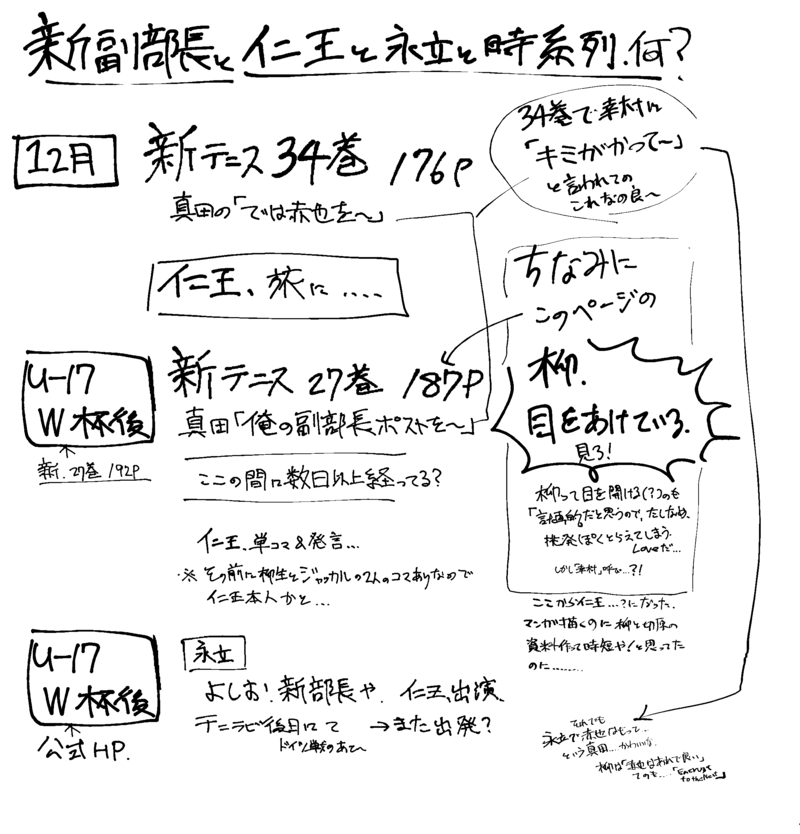 新副部長と仁王と永立と時系列.何?
12月
新テニス 34巻 176P
真田の「では赤也を〜」
34巻で幸村に
「キミがかって〜」
と言われての
これなの良〜
仁王、旅に....
ちなみに
このページの
柳.
目をあけている.
見ろ!
U-17
W杯後
新.27巻 192P
新テニス 27巻 187P
真田「俺の副部長ポストを〜」
ここの間に数日以上経ってる?
柳って目を開ける(?)のも
「計画的」だと思うので、たしなめ、
挑発ぽくとらえてしまう.
Loveだ...
しかし「幸村」呼び...?!
仁王、単コマ&発言...
※その前に柳生とジャッカルの2人のコマありなので
仁王本人かと...
ここから仁王...?になった.
マンガ描くのに柳と切原の
資料作って時短や!と思ってた
のに........
U-17
W杯後
公式HP.
永立
よしお!新部長や.仁王、出演、
テニラビ後日にて →また出発?
ドイツ戦のあと〜
それでも
永立で赤也はもって...
という真田....かわいいな.
柳は「赤也はあれで良い」
てのも....